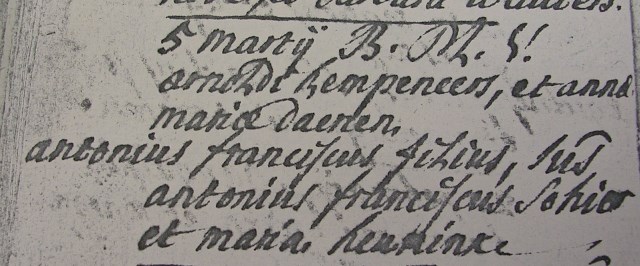 5 martij B. M. V.
arnoldi Lempeneers, et anna
mariæ daenen,
antonius franciscus filius, sus
antonius franciscus Sohier
et maria